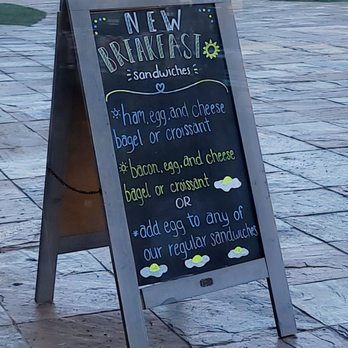 NEW
BREAKFAST
sandwiches
ham, egg, and cheese
bagel or croissant
bacon, egg, and cheese
bagel or croissant
OR
*add egg to any of
our regular sandwiches